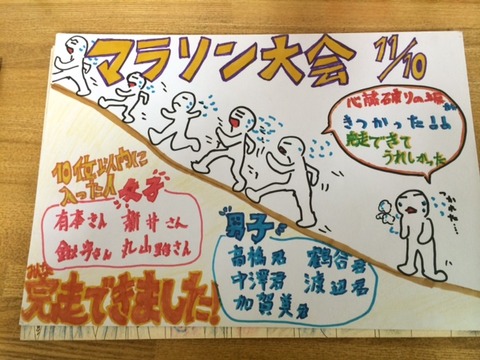 マラソン大会 11/10
心臓破りの坂が
きつかった
完走できて
うれしかった
つかれた…
10位以内に
入った人
女子
有本さん 新井さん
丸山野さん
男子
高橋君 鶴谷君
中澤君 渡辺君
加賀美君
みんな
完走できました!